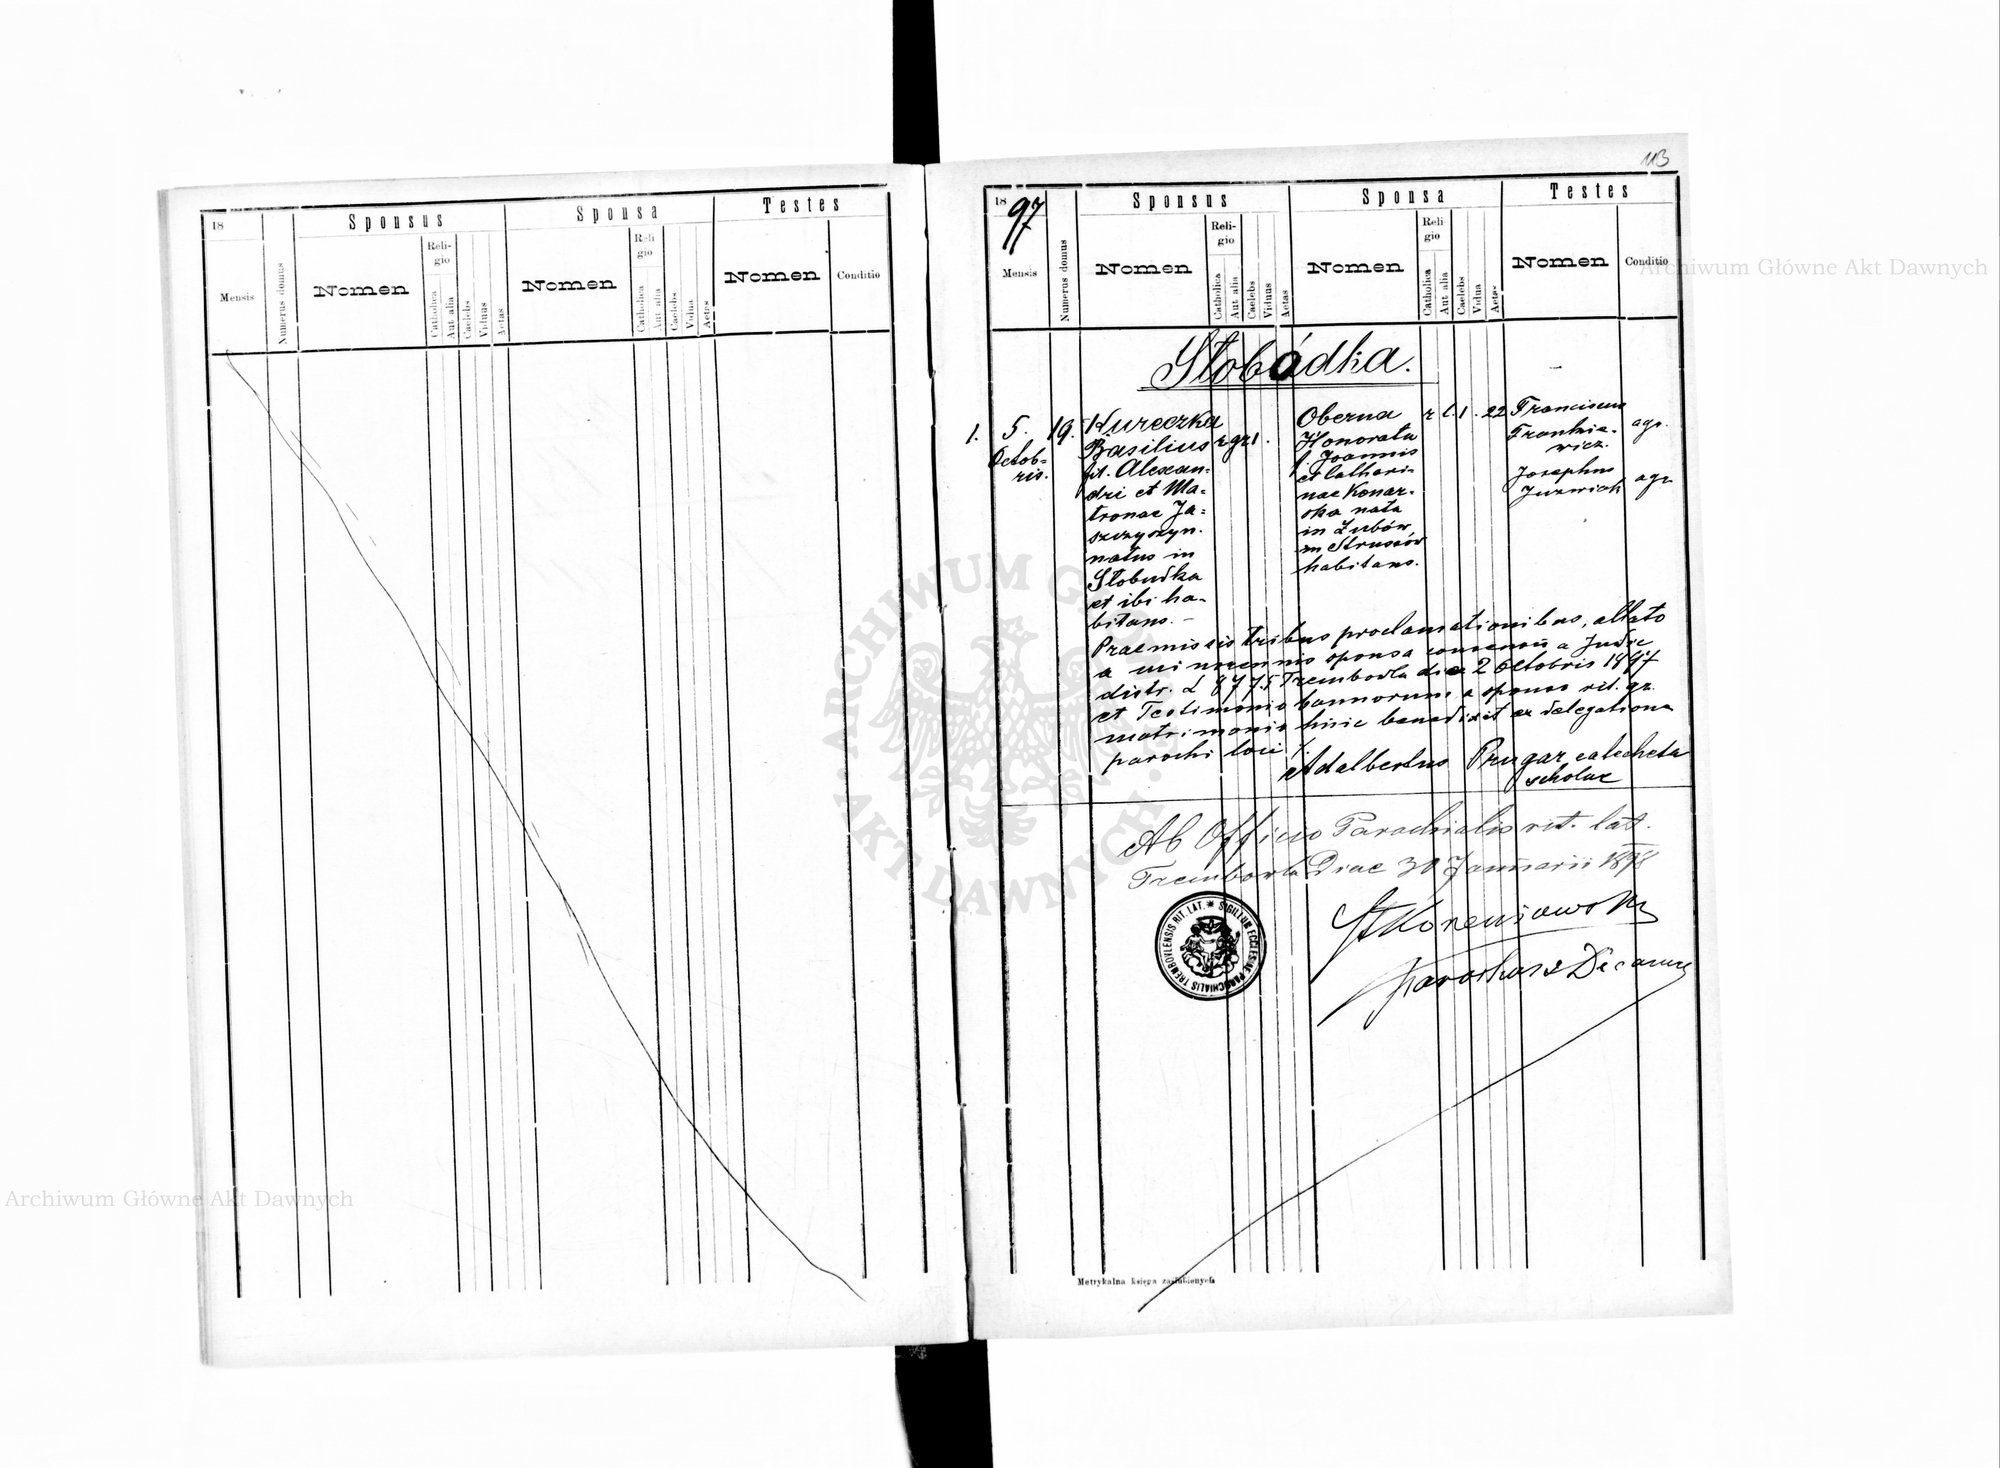 113
18
Sponsus
Sponsa
Testes
Mensis
Numerus domus
Nomen
Religio
Catholica
Aut alia
Caelebs
Viduus
Aetas
Nomen
Religio
Catholica
Aut alia
Caelebs
Vidua
Aetas
Nomen
Conditio
1897
Sponsus
Sponsa
Testes
Mensis
Numerus domus
Nomen
Religio
Catholica
Aut alia
Caelebs
Viduus
Aetas
Nomen
Religio
Catholica
Aut alia
Caelebs
Vidua
Aetas
Nomen
Conditio
Słobódka.
1. 5. Octobris.
19.
Kureczka
Basilius r gr 1.
fil. Alexan-
dri et Ma-
tronae Ja-
szczyszyn.
natus in
Słobudka
et ibi ha-
bitans.
Oberna r l. 1. 22
Honorata
f. Joannis
et Cathari-
nae Konar-
ska nata
in Zubów
in Strusów
habitans.
Franciscus
agr.
Josephus
Juzwiak agr
Praemissis tribus proclamationibus, allato
a minorennis sponsa consensu a Judic
distr. L 8775 Trembowla die 2 Octobris 1897
et Testimonio bannorum a sponso rit. gr.
matrimonio huic benedixit ex delegatione
parochi loci
Adalbertus Prugar catecheta
scholae
Ab Officio Parochialis rit. lat.
Trembowla Diae 30 Januarii 1898
SIGILLUM ECCLESIAE PAROCHIALIS TREMBOVLENSIS RIT. LAT.
Korzeniowski
Parochus & Decanus
Metrykalna księga zaślubionych
Archiwum Główne Akt Dawnych
Archiwum Główne Akt Dawnych
ARCHIWUM GŁÓWNE AKT DAWNYCH